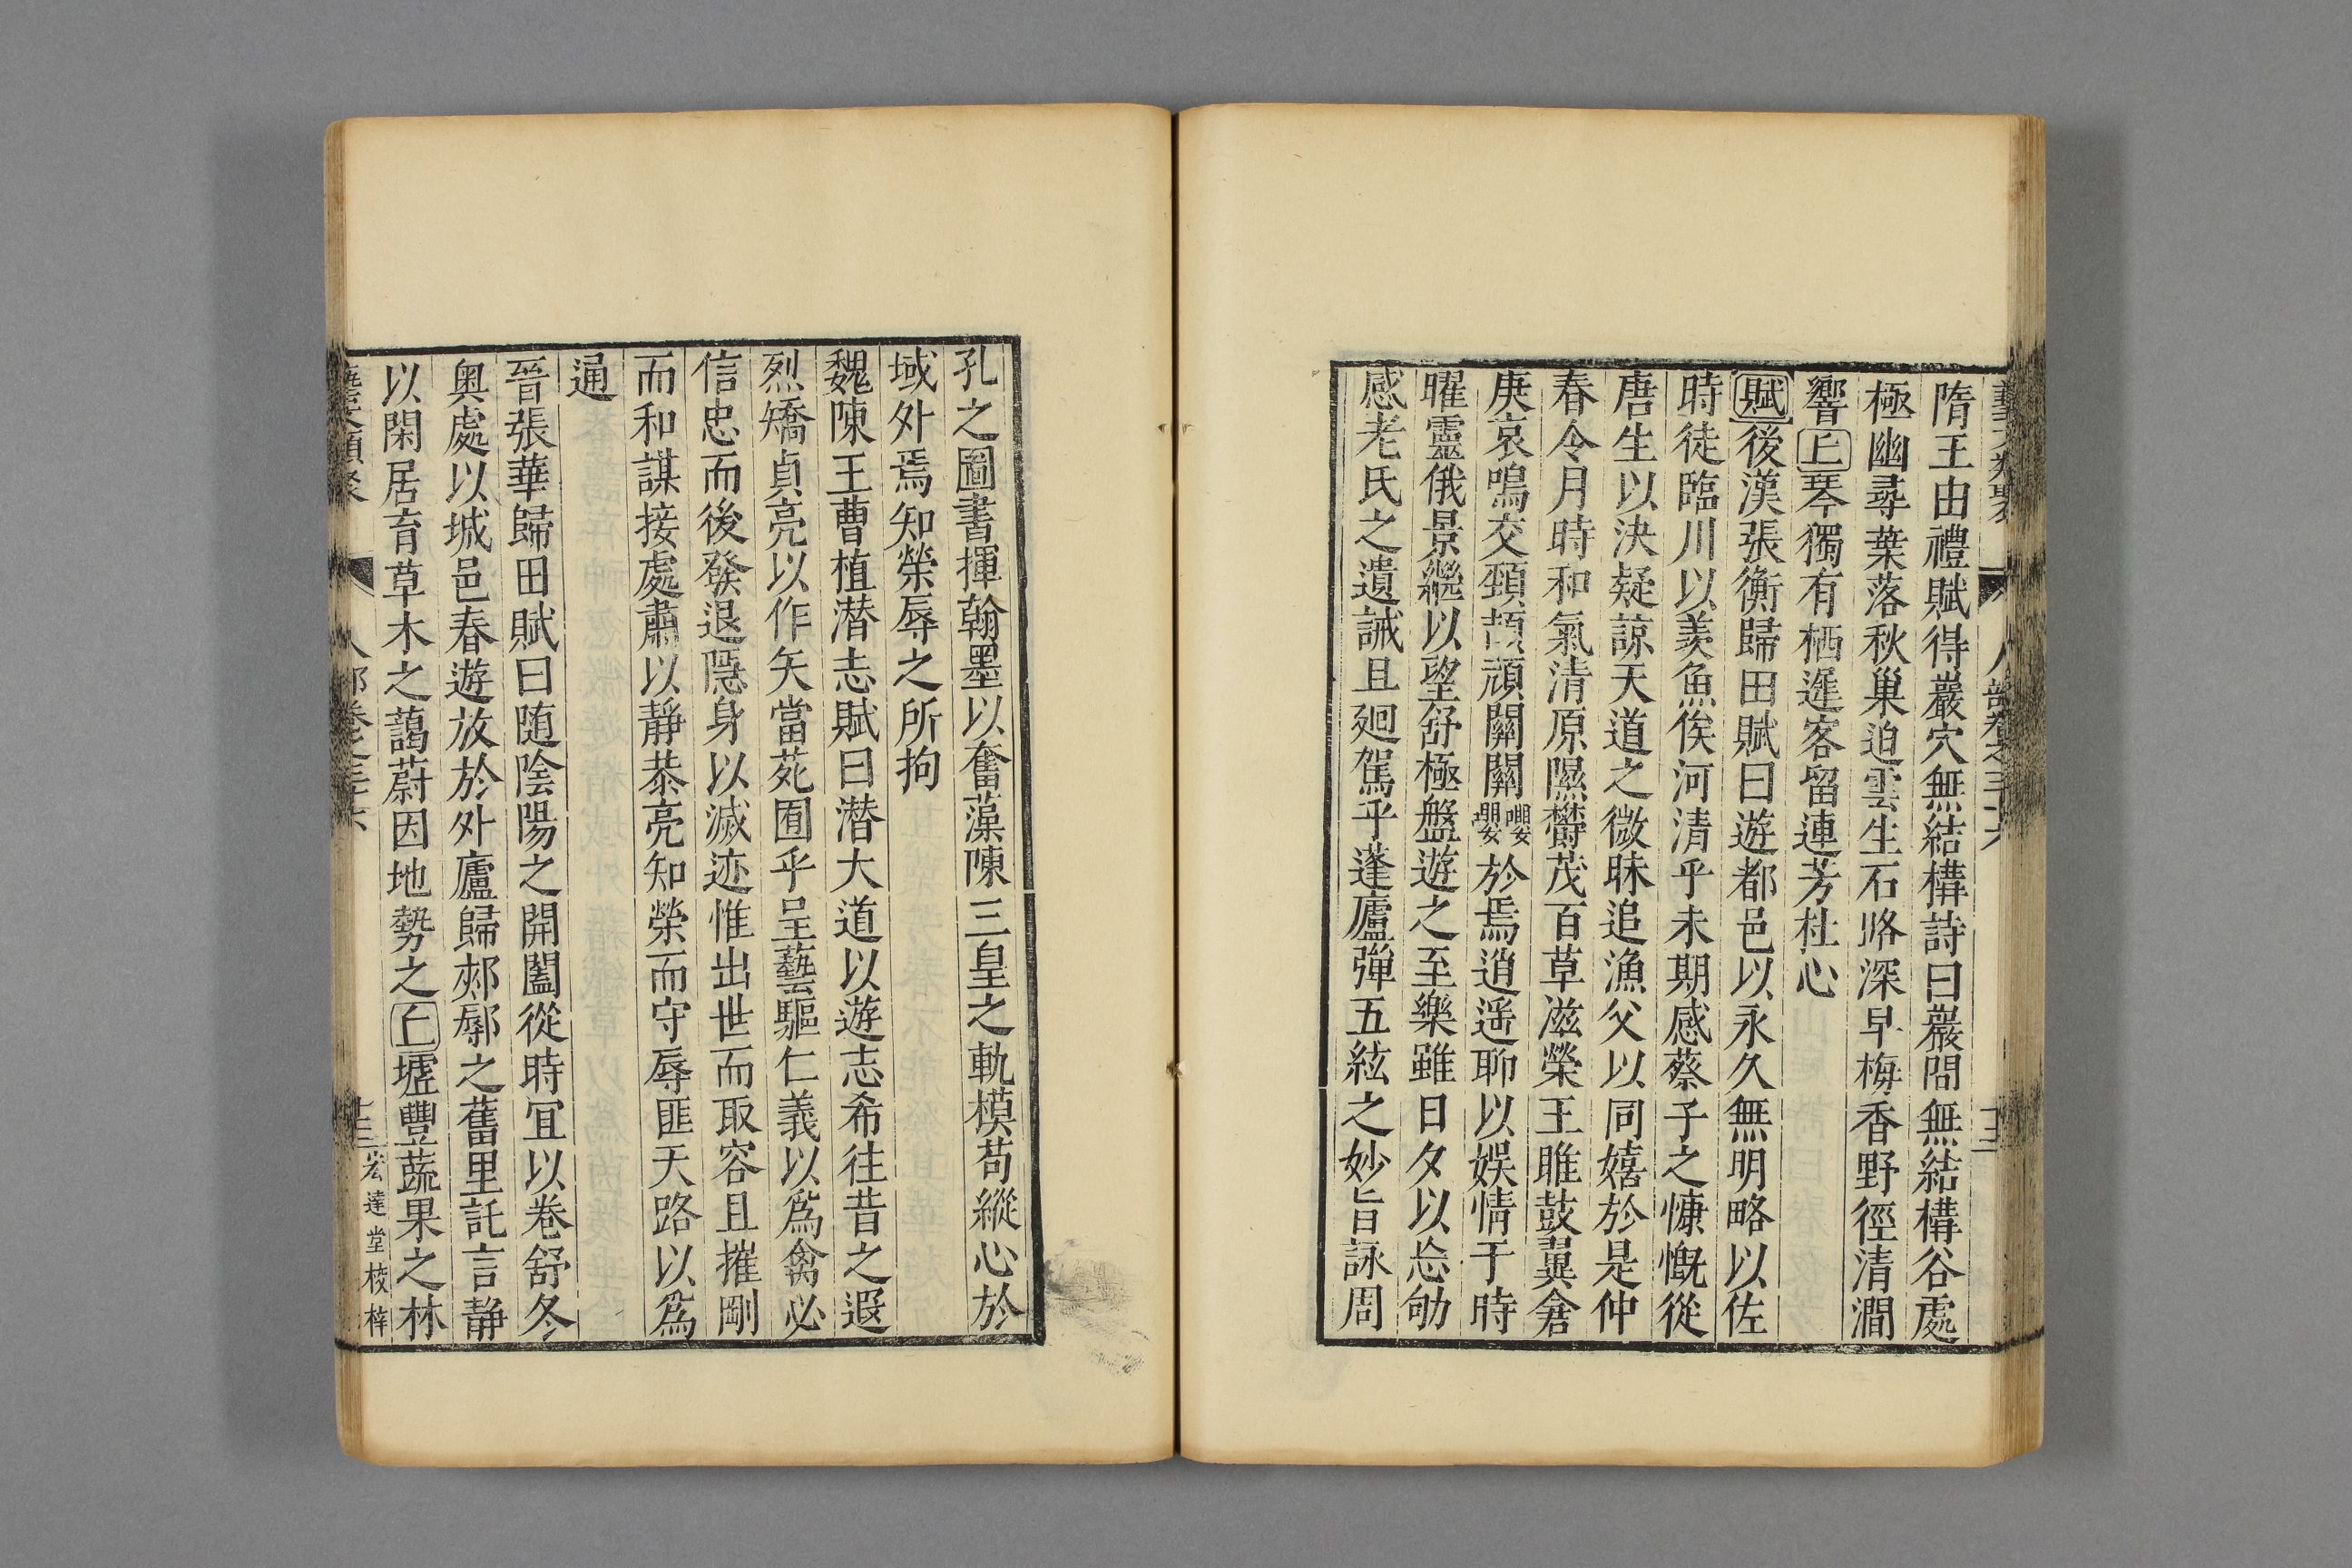 藝文類聚 人部卷之三十六 十二
隋王由禮賦得巖穴無結構詩曰巖間無結構谷處
極幽尋葉落秋巢迫雲生石路深早梅香野徑清澗
響丘琴獨有栖遲客留連芳杜心
賦後漢張衡歸田賦曰遊都邑以永久無明略以佐
時徒臨川以羡魚俟河清乎未期感蔡子之慷慨從
唐生以決疑諒天道之微昧追漁父以同嬉於是仲
春令月時和氣清原隰欝茂百草滋榮王雎鼓翼倉
庚哀鳴交頸頡頏關關嚶嚶於焉逍遥聊以娱情于時
曜靈俄景繼以望舒極盤遊之至樂雖日夕以忘劬
感老氏之遺誡且廻駕乎蓬廬彈五絃之妙旨詠周
孔之圖書揮翰墨以奮藻陳三皇之軌模苟縱心於
域外焉知榮辱之所拘
魏陳王曹植潛志賦曰潛大道以遊志希往昔之遐
烈矯貞亮以作矢當苑囿乎呈藝驅仁義以為禽必
信忠而後發退隱身以滅迹惟出世而取容且摧剛
而和謀接處肅以靜恭亮知榮而守辱匪天路以為
通
晉張華歸田賦曰随陰陽之開闔從時冝以卷舒冬
奥處以城邑春遊放於外廬歸郟鄏之舊里託言静
以閑居育草木之藹蔚因地勢之丘墟豐蔬果之林
藝文類聚 人部卷之三十六 十二 宏達堂校梓